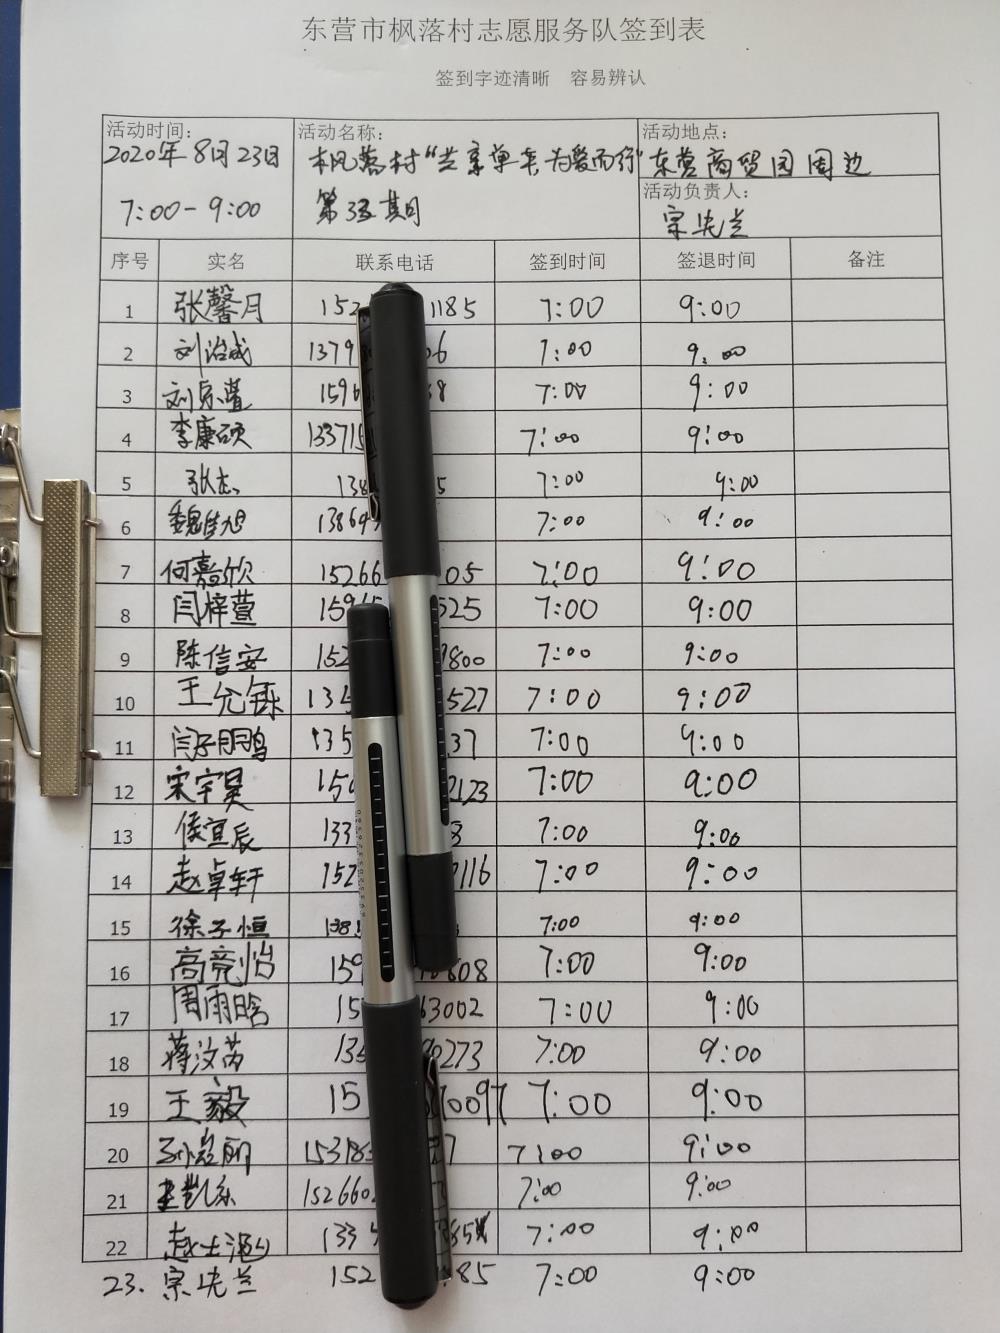 东营市枫落村志愿服务队签到表
签到字迹清晰 容易辨认
活动时间: 活动名称: 活动地点:
2020年8月23日 枫落村“共享单车,为爱而行” 东营商贸园周边
活动负责人:
7:00-9:00 期
序号 实名 联系电话 签到时间 签退时间 备注
1 张馨月 152 1185 7:00 9:00
2 刘治成 1379 06 7:00 9:00
3 刘 1596 38 7:00 9:00
4 李康硕 133715 7:00 9:00
5 张志 138 5 7:00 9:00
6 魏 13864 7:00 9:00
7 何嘉欣 15266 05 7:00 9:00
8 闫梓萱 1596 525 7:00 9:00
9 陈信安 152 9800 7:00 9:00
10 王允 135 527 7:00 9:00
11 闫子鹏 135 37 7:00 9:00
12 宋宇昊 150 2123 7:00 9:00
13 侯宜辰 133 3 7:00 9:00
14 赵卓轩 152 0116 7:00 9:00
15 徐子恒 138 7:00 9:00
16 高竞怡 159 0808 7:00 9:00
17 周雨晗 15 63002 7:00 9:00
18 蒋汶芮 13 0273 7:00 9:00
19 王毅 15 0097 7:00 9:00
20 孙 丽 153185 7 7:00 9:00
21 凯乐 152660 7:00 9:00
22 赵士 133 85 7:00 9:00
23. 152 85 7:00 9:00